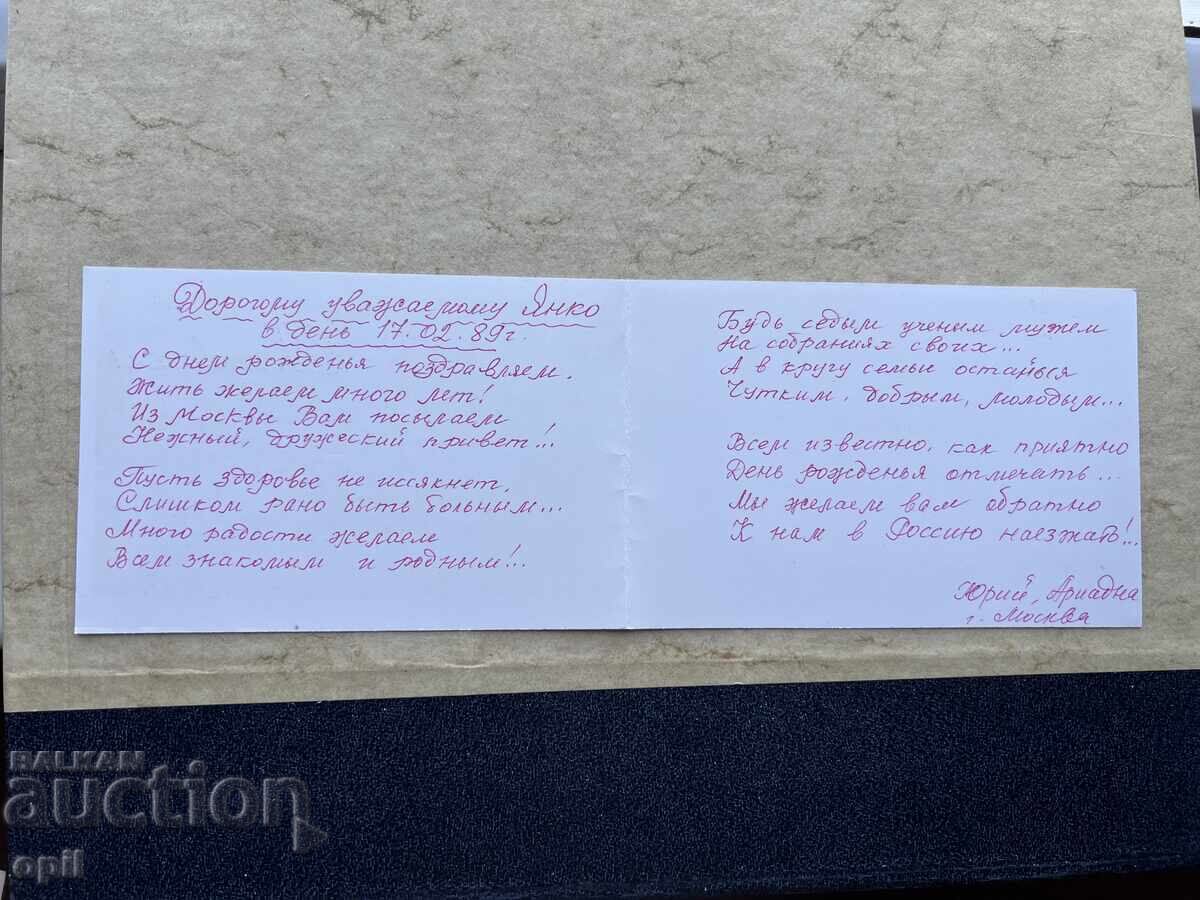 Дорогому уважаемому Янко
в день 17.02.89г.
С днем рожденья поздравляем.
Жить желаем много лет!
Из Москвы Вам посылаем
Нежный, дружеский привет!..
Пусть здоровье не иссякнет,
Слишком рано быть больным...
Много радости желаем
Всем знакомым и родным!..
Будь седым ученым мужем
На собраниях своих...
А в кругу семьи останься
Чутким, добрым, молодым...
Всем известно, как приятно
День рожденья отмечать...
Мы желаем вам обратно
К нам в Россию наезжать!..
Юрий, Ариадна
г. Москва
BALKAN
auction
opil